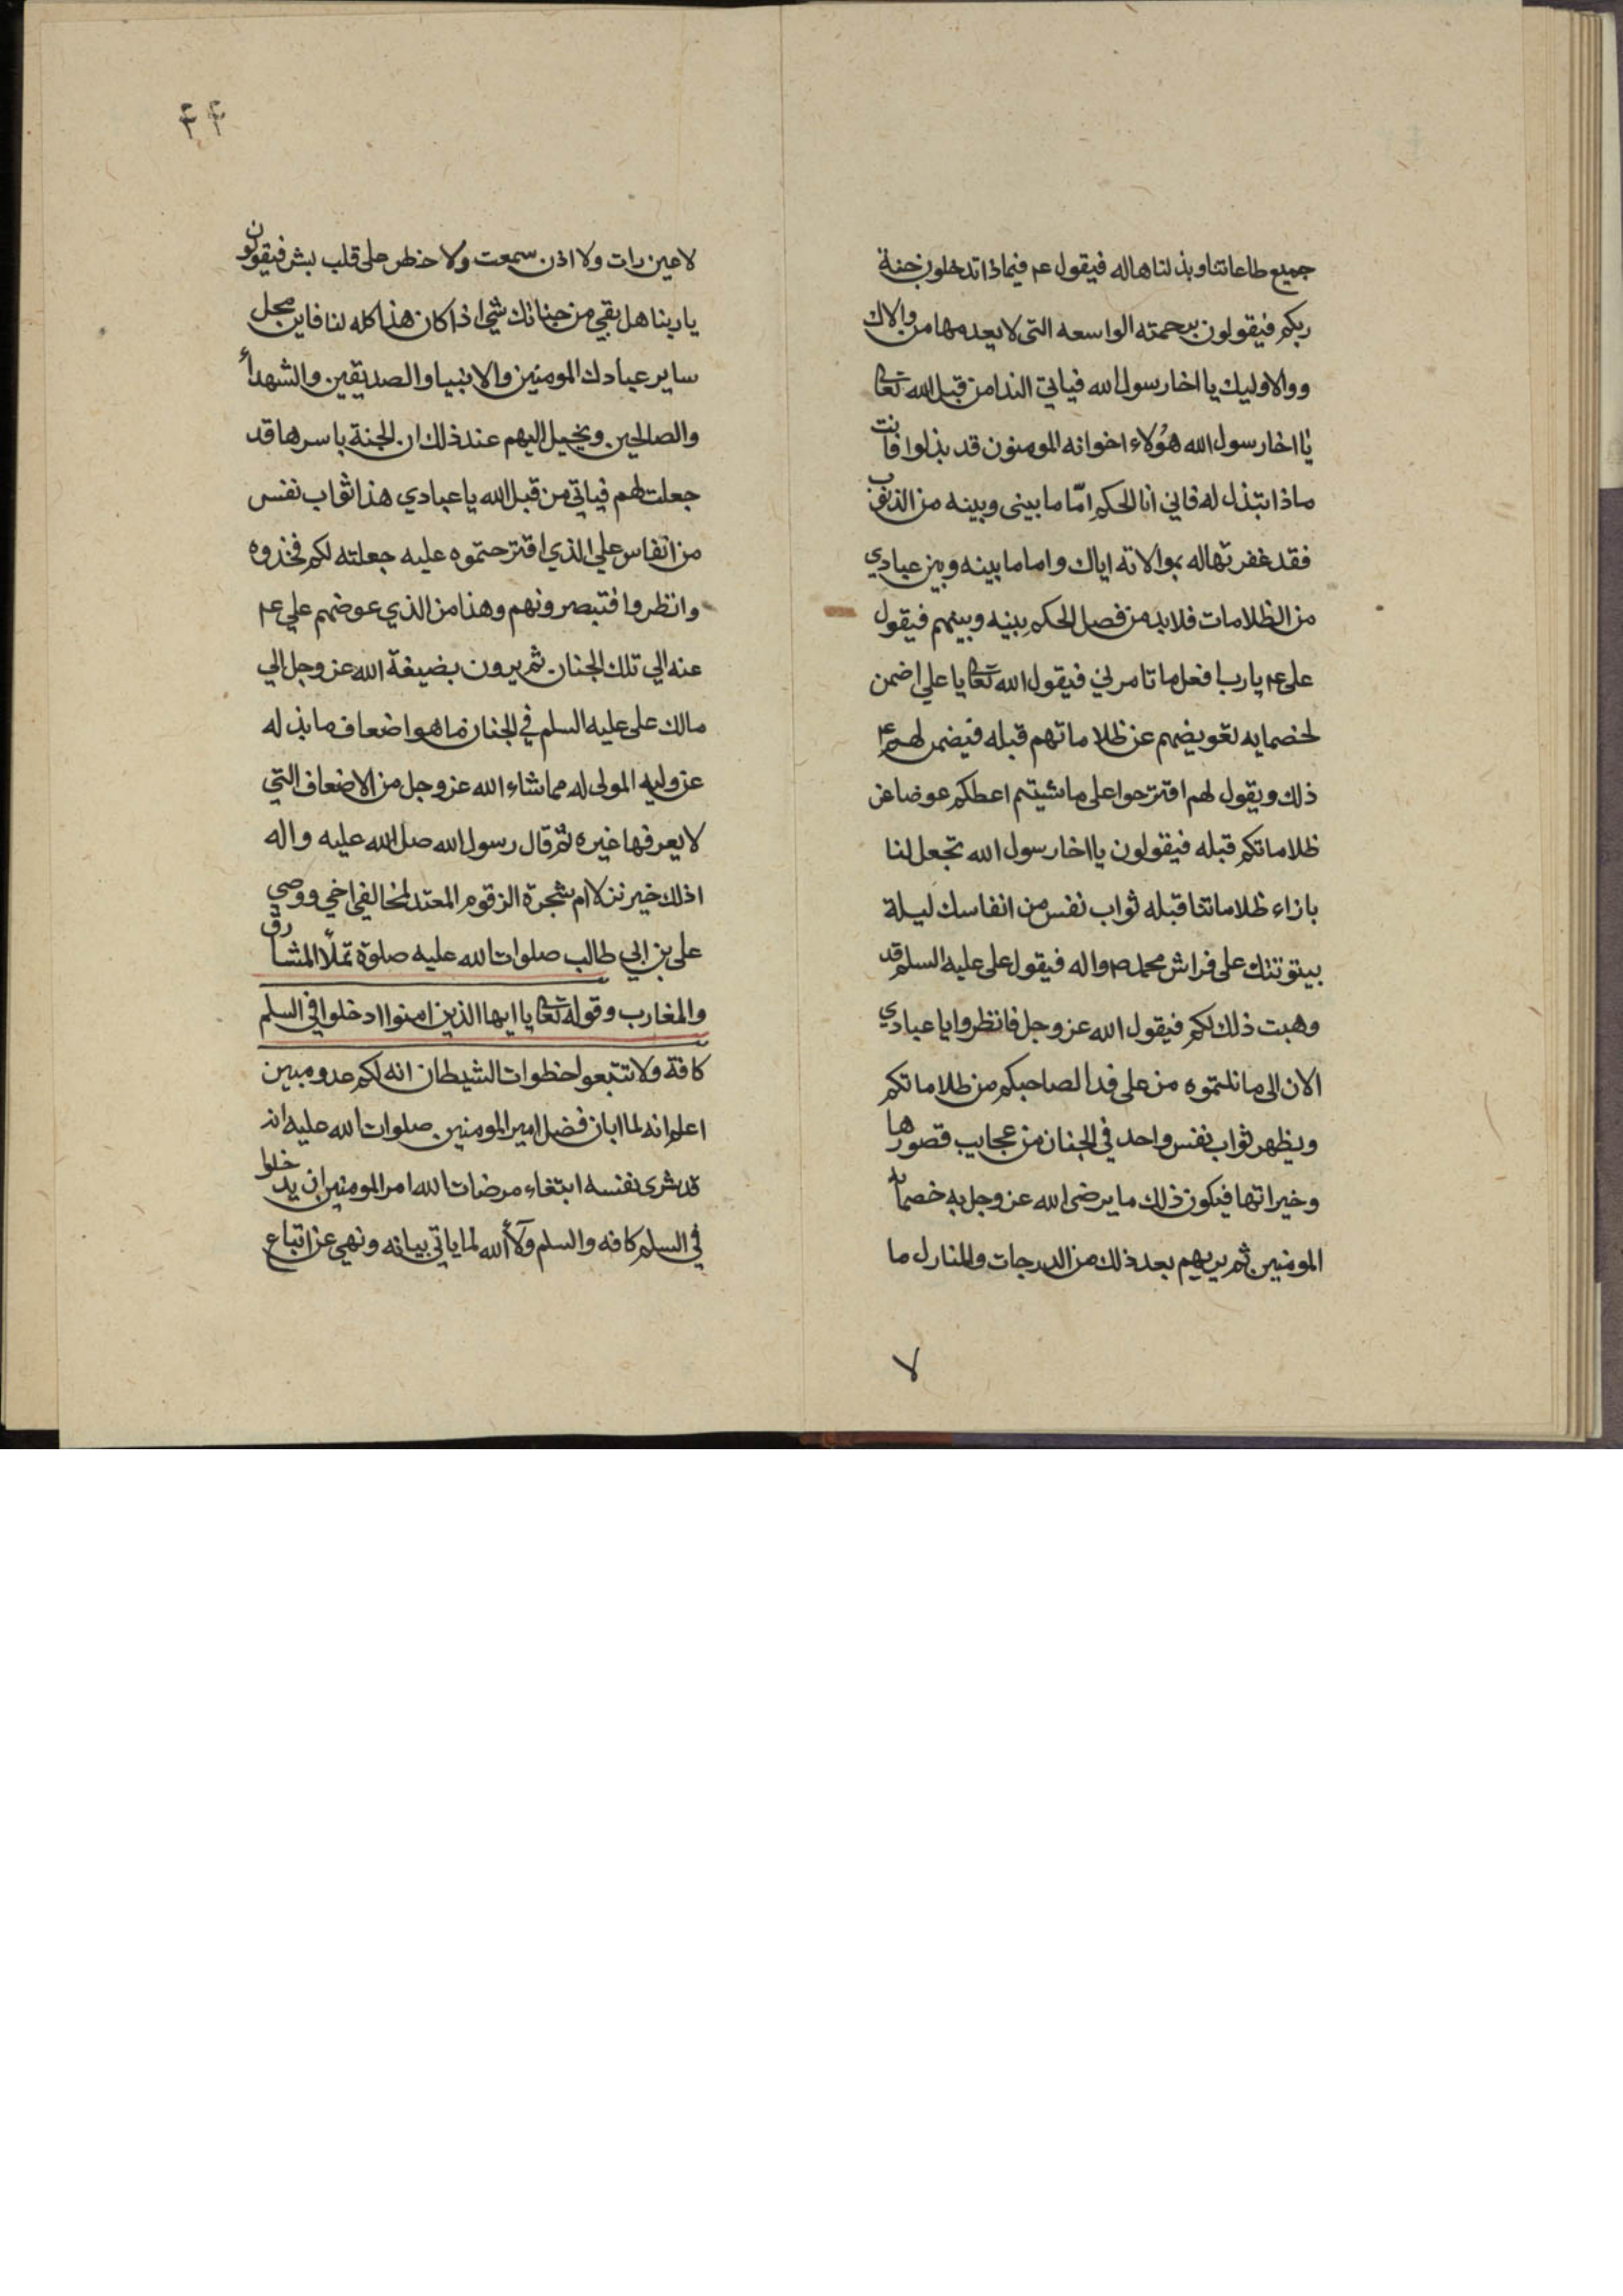 جميع طاعاتنا وبذلناها له فيقول عم فبماذا تدخلون جنة
ربكم فيقولون برحمته الواسعه التي لا يعدمها من والاك
ووالا وليك يا اخا رسول الله فياتي الندا من قبل الله تعا
يا اخا رسول الله هؤلاء اخوانه المومنون قد بذلوا فانت
ماذا تبذل له فاني انا الحكم امّا ما بيني وبينه من الذنوب
فقد غفرتها له بموالاته اياك واما ما بينه وبين عبادي
من الظلامات فلا بد من فصل الحكم بينه وبينهم فيقول
على عم يا رب افعل ما تامرني فيقول الله تعا يا علي اضمن
لخصمايه تعويضهم عن ظلاماتهم قبله فيضمن لهم عم
ذلك ويقول لهم اقترحوا على ما شيتم اعطكم عوضا عن
ظلاماتكم قبله فيقولون يا اخا رسول الله تجعل لنا
بازاء ظلاماتنا قبله ثواب نفس من انفاسك ليلة
بيتوتتك على فراش محمد ص واله فيقول على عليه السلم قد
وهبت ذلك لكم فيقول الله عز وجل فانظروا يا عبادي
الان الى ما نلتموه من على فدا لصاحبكم من ظلاماتكم
ويظهر ثواب نفس واحد في الجنان من عجايب قصورها
وخيراتها فيكون ذلك ما يرضى الله عز وجل به خصماء
المومنين ثم يريهم بعد ذلك من الدرجات والمنازل ما
٧
٤٤
لا عين رات ولا اذن سمعت ولا خطر على قلب بشر فيقولون
يا ربنا هل بقي من جنانك شي اذا كان هذا كله لنا فاين محل
ساير عبادك المومنين والانبيا والصديقين والشهدأ
والصالحين ويخيل اليهم عند ذلك ان الجنة باسرها قد
جعلت لهم فياتي من قبل الله يا عبادي هذا ثواب نفس
من انفاس علي الذي اقترحتموه عليه جعلته لكم فخذوه
وانظروا فتبصرونهم وهذا من الذي عوضهم علي عم
عنه الي تلك الجنان ثم يرون بضيفة الله عز وجل الي
مالك على عليه السلم في الجنان ما هو اضعاف ما بذله
عن وليه المولى له مما شاء الله عز وجل من الاضعاف التي
لا يعرفها غيره ثم قال رسول الله صل الله عليه واله
اذلك خير نزلا ام شجرة الزقوم المعتد لمخالفي اخي ووصي
على بن ابي طالب صلوات الله عليه صلوة تملأ المشارق
والمغارب وقوله تعا يا ايها الذين امنوا ادخلوا في السلم
كافة ولا تتبعوا خطوات الشيطان انه لكم عدو مبين
اعلم انه لما ابان فضل امير المومنين صلوات الله عليه انه
قد شرى نفسه ابتغاء مرضات الله امر المومنين ان يدخلوا
في السلم كافه والسلم ولاأ الله لما ياتي بيانه ونهي عن اتباع